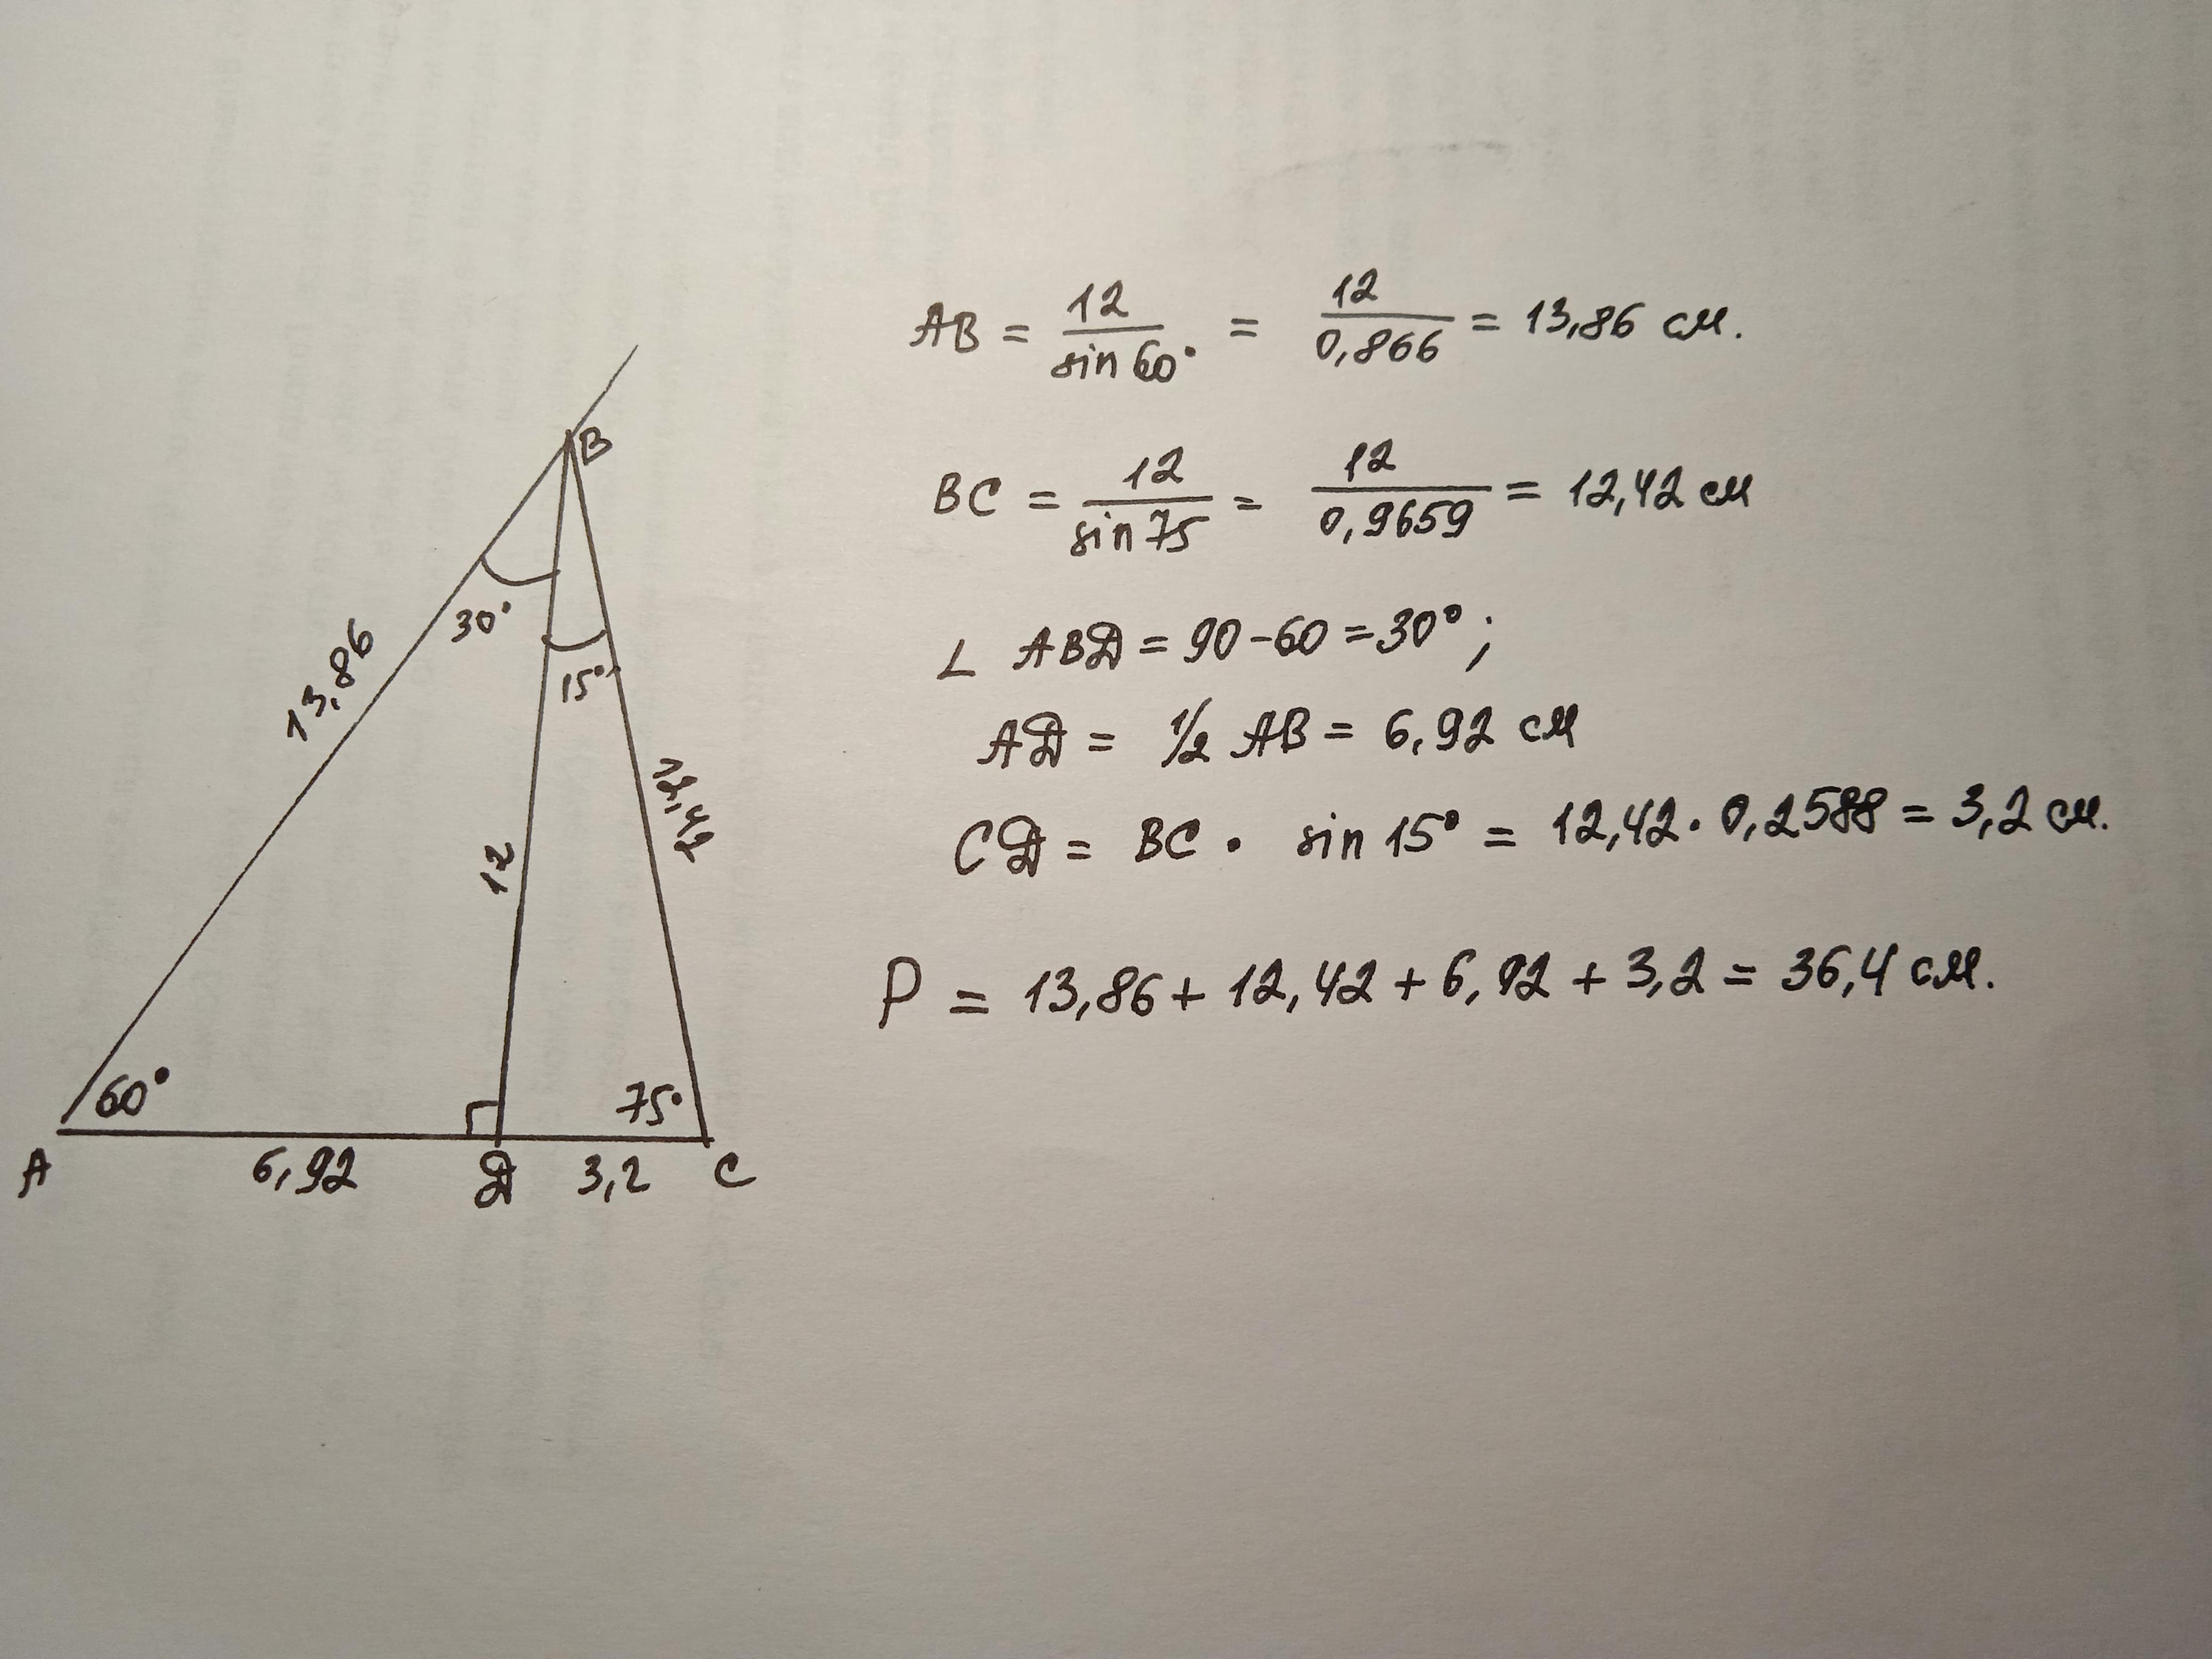 AB = 12/sin 60° = 12/0,866 = 13,86 см.
BC = 12/sin 75 = 12/0,9659 = 12,42 см
∠ ABD = 90 - 60 = 30° ;
AD = 1/2 AB = 6,92 см
CD = BC · sin 15° = 12,42 · 0,2588 = 3,2 см.
P = 13,86 + 12,42 + 6,92 + 3,2 = 36,4 см.
B
30°
15°
13,86
12
12,42
60°
75°
A
6,92
D
3,2
C